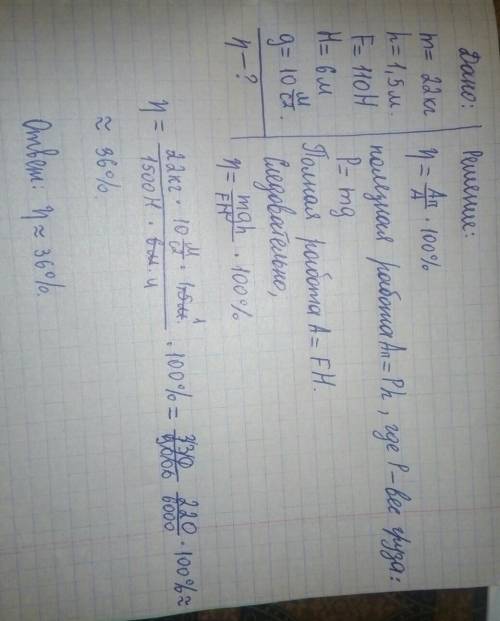 Дано:
m = 22кг
h = 1,5 м.
F = 110Н
H = 6 м
g = 10 м/с².
η - ?
Решение:
η = Aп/A · 100%
полезная работа Aп = Ph, где P - вес груза:
P = mg
Полная работа A = FH.
Следовательно,
η = mgh/FH · 100%
η = 22кг · 10 м/с² · 1,5м. 1 / 1500Н · 6м. 4 · 100% = 330/9000 220/6000 · 100% ≈
≈ 36%.
Ответ: η ≈ 36%.